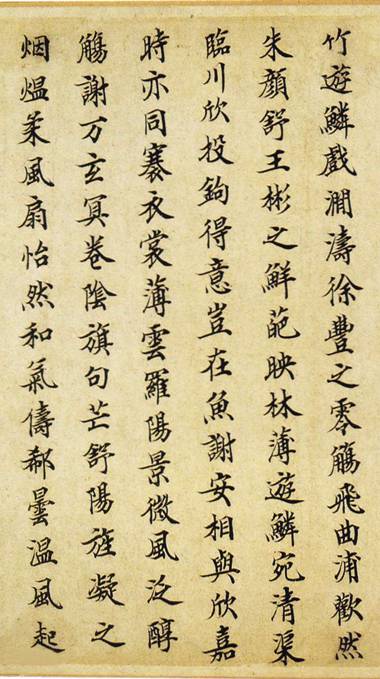 竹遊鱗戲澗濤徐豐之零觴飛曲浦歡然
朱顏舒王彬之鮮葩映林薄遊鱗宛清渠
臨川欣投鉤得意豈在魚謝安相與欣嘉
時亦同褰衣裳薄雲羅陽景微風泛醇
觴謝万玄冥卷陰旗句芒舒陽旌凝之
烟熅柔風扇怡然和氣儔郗曇温風起